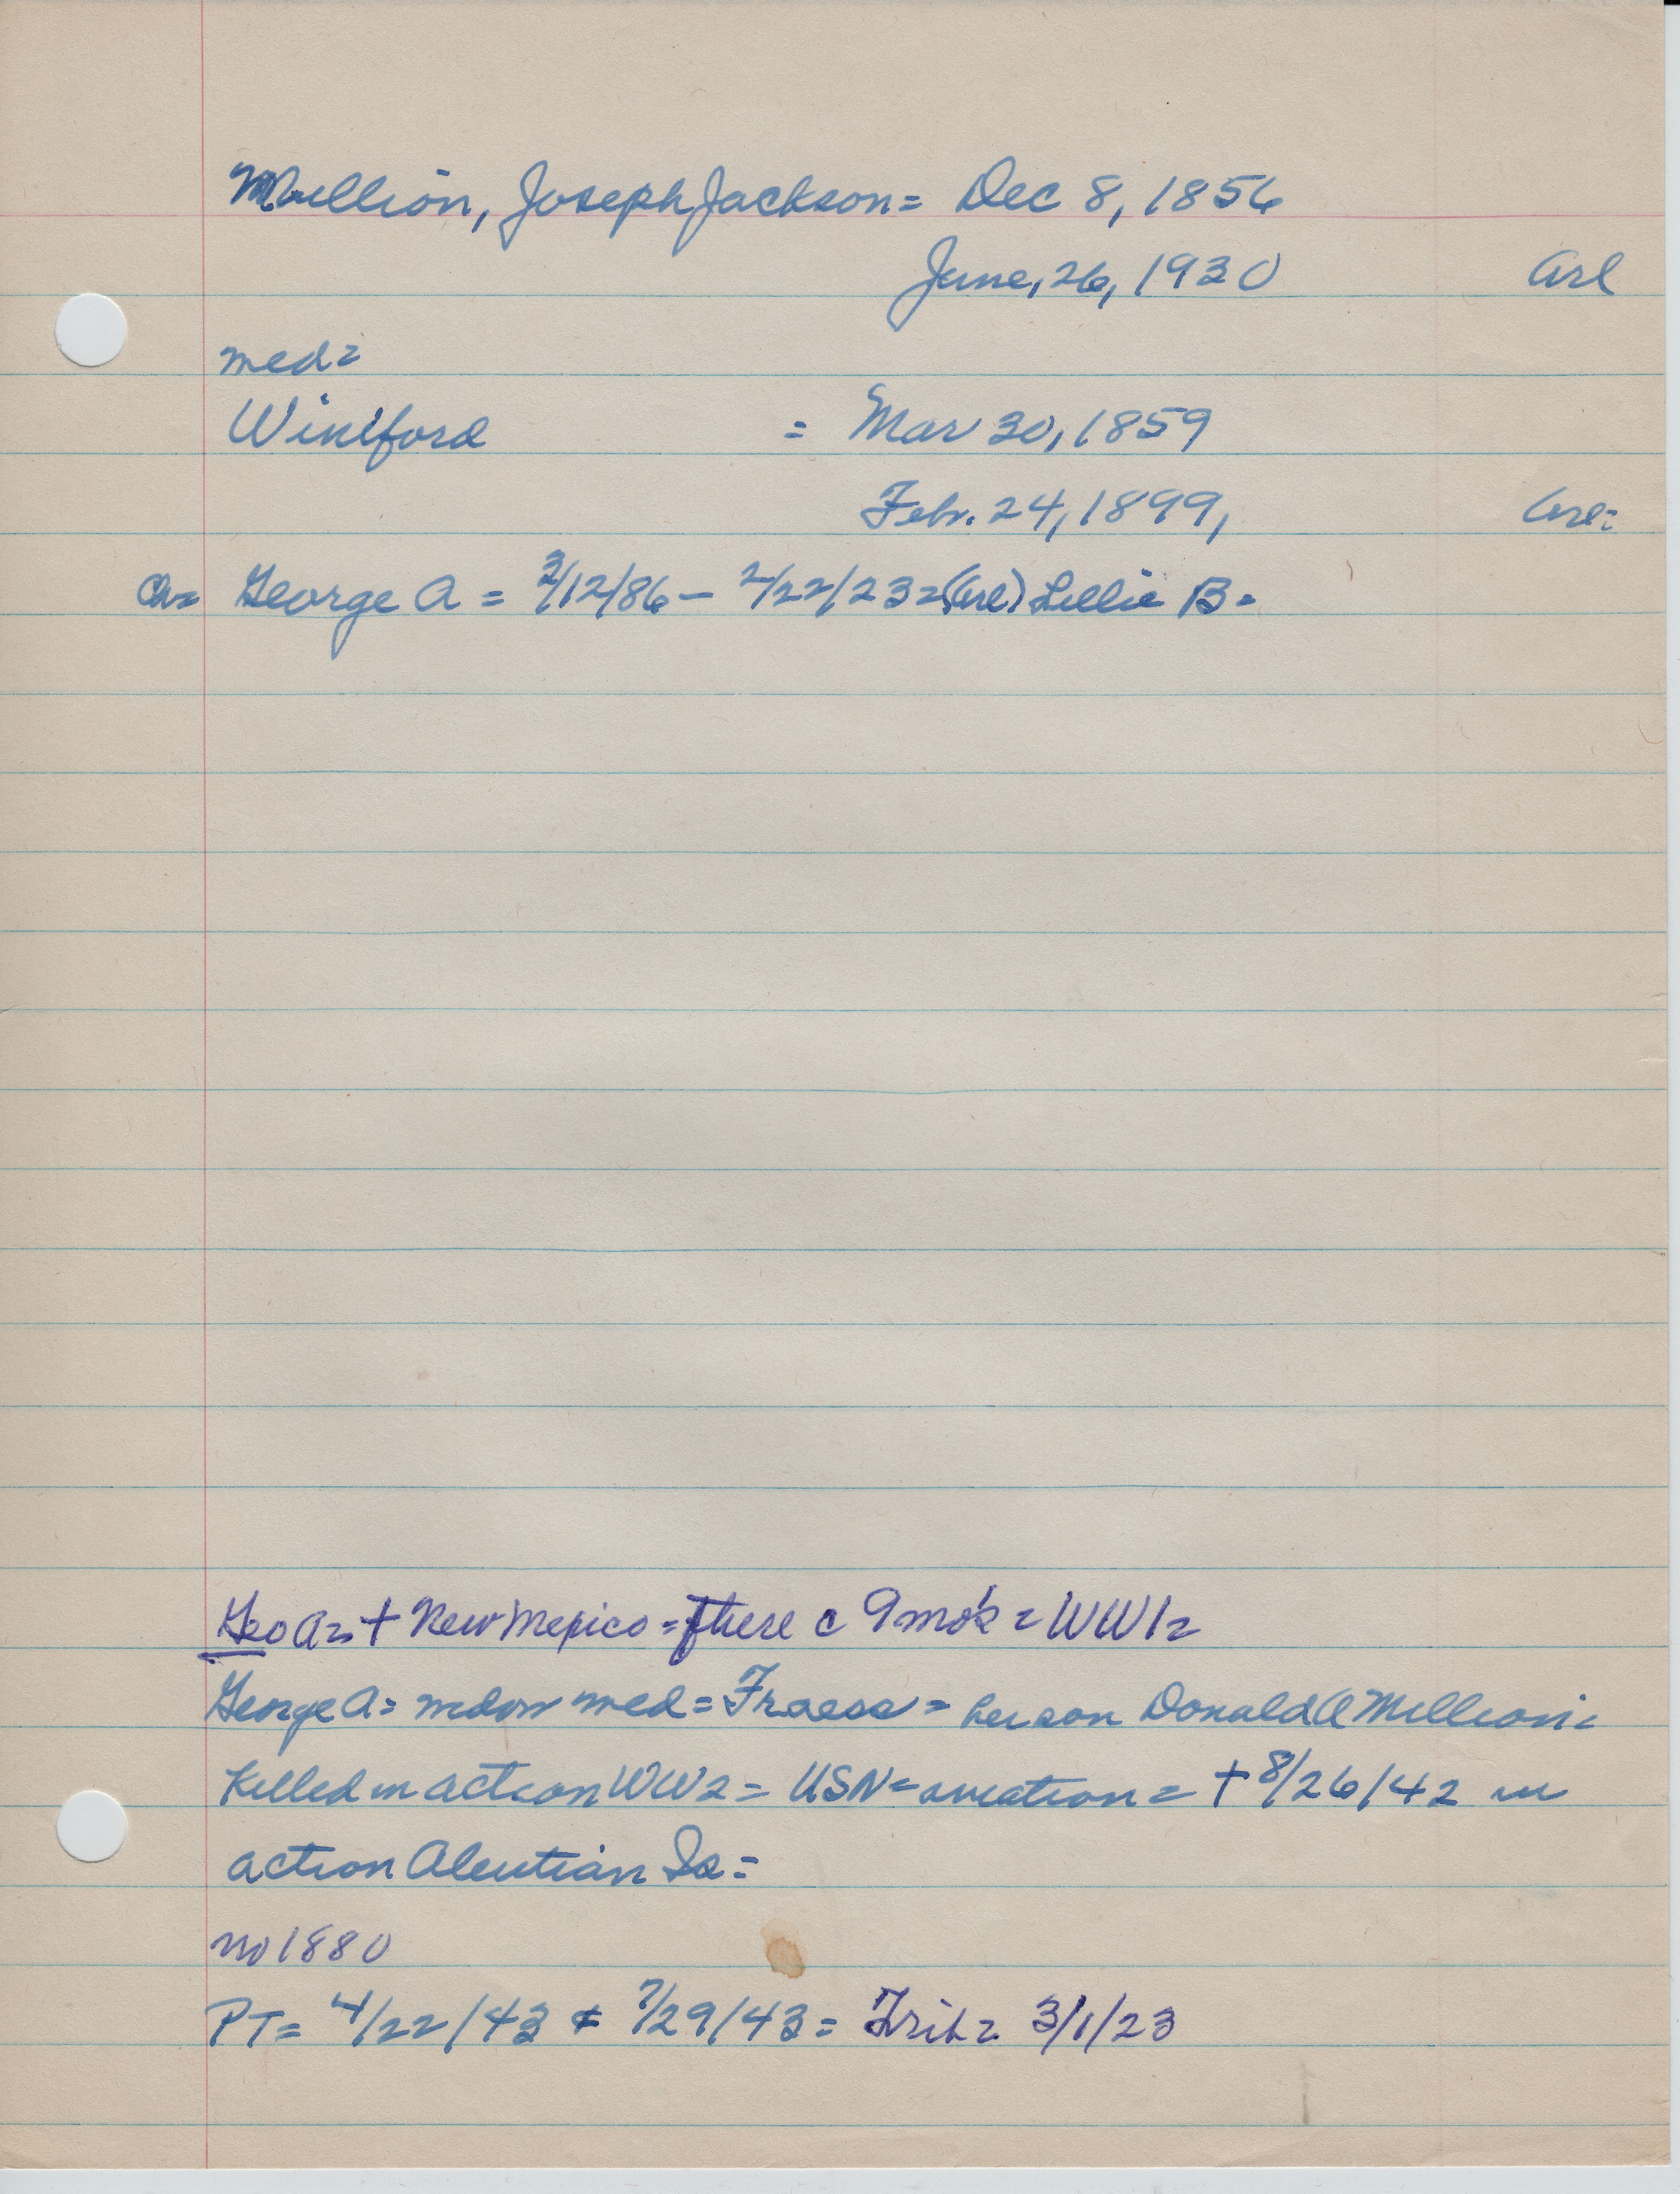 Million, Joseph Jackson = Dec 8, 1856
June, 26, 1930 Arl
med=
Winiford = Mar 30, 1859
Febr. 24, 1899, Arl=
a= George A = 3/12/86 - 2/22/23 = (Arl) Lillie B =
Geo A = + New Mexico = there c 9 mo's = WW1 =
George A = med = = her son Donald A Million =
Killed in action WW2 = USN = aviation = + 8/26/42 in
action Aleutian Is =
no 1880
PT = 4/22/43 & 7/29/43 = Trib = 3/1/23